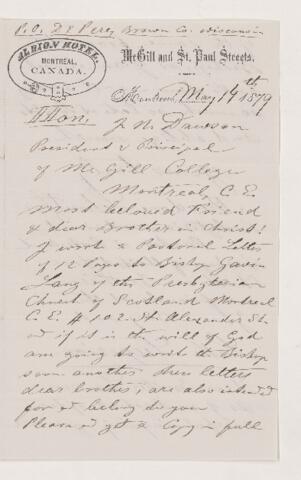 P.O. De Perez Brown Co. Wisconsin
ALBION HOTEL,
MONTREAL,
CANADA.
McGill and St. Paul Streets.
Montreal May 19th 1879
Hon.
J W Dawson
President & Principal
of Mc Gill College
Montreal, C. E.
Most beloved Friend
& dear Brother in Christ!
I wrote a Pastoral Letter
of 12 Pages to Bishop Gavin
Lang of the Presbyterian
Church of Scotland Montreal
C. E. # 102. St. Alexander St.
and if it is the will of God
am going to write the Bishop
soon another these letters
dear brother, are also intended
for and belong to you
Please and get a Copy in full